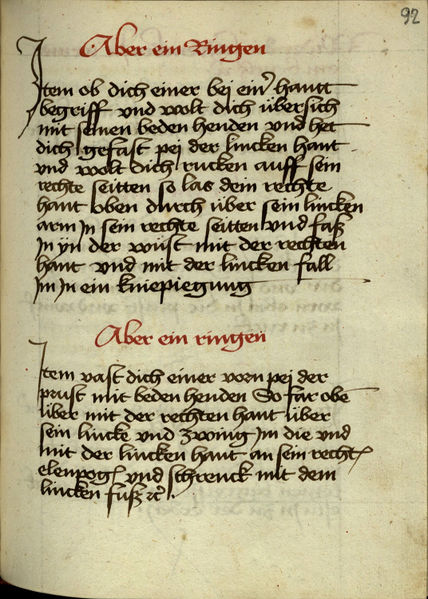 92
Aber ein Ringen
Item ob dich einer bei einer hantt
begriff und wolt dich übersich
mit seinen beden henden und het
dich gefast pei der lincken hant
und wolt dich rucken auff sein
rechte seitten so las dein rechte
hant oben durch über sein lincken
arm In sein rechte seitten und faß
In yn der wüst mit der rechten
hant und mit der lincken fall
Im In ein kniepiegung
Aber ein ringen
Item vast dich einer vorn pei der
prust mit beden henden So far obē
über mit der rechten hant über
sein lincke und zwing Im die und
mit der lincken hant an sein recht
elenpog und schrenck mit dem
lincken fuß ꝛc